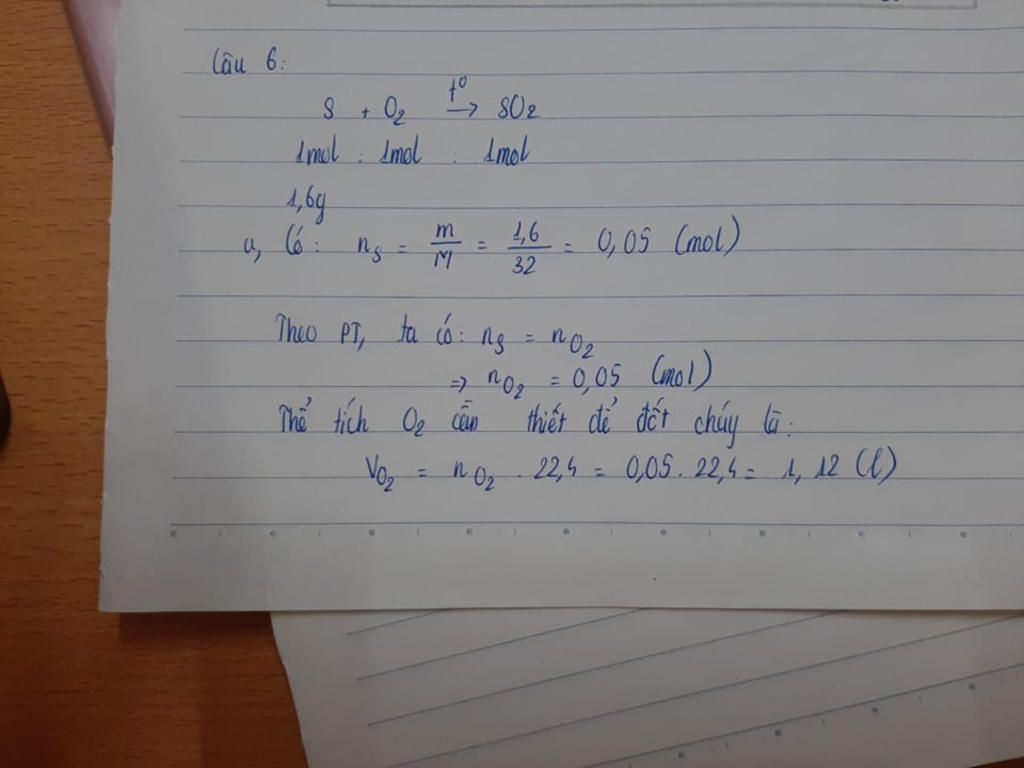 Câu 6:
S + O₂ t⁰→ SO₂
1mol : 1mol : 1mol
1,6g
a, Có: nₛ = m/M = 1,6/32 = 0,05 (mol)
Theo PT, ta có: nₛ = n O₂
=> n O₂ = 0,05 (mol)
Thể tích O₂ cần thiết để đốt cháy là:
V O₂ = n O₂ . 22,4 = 0,05 . 22,4 = 1,12 (l)